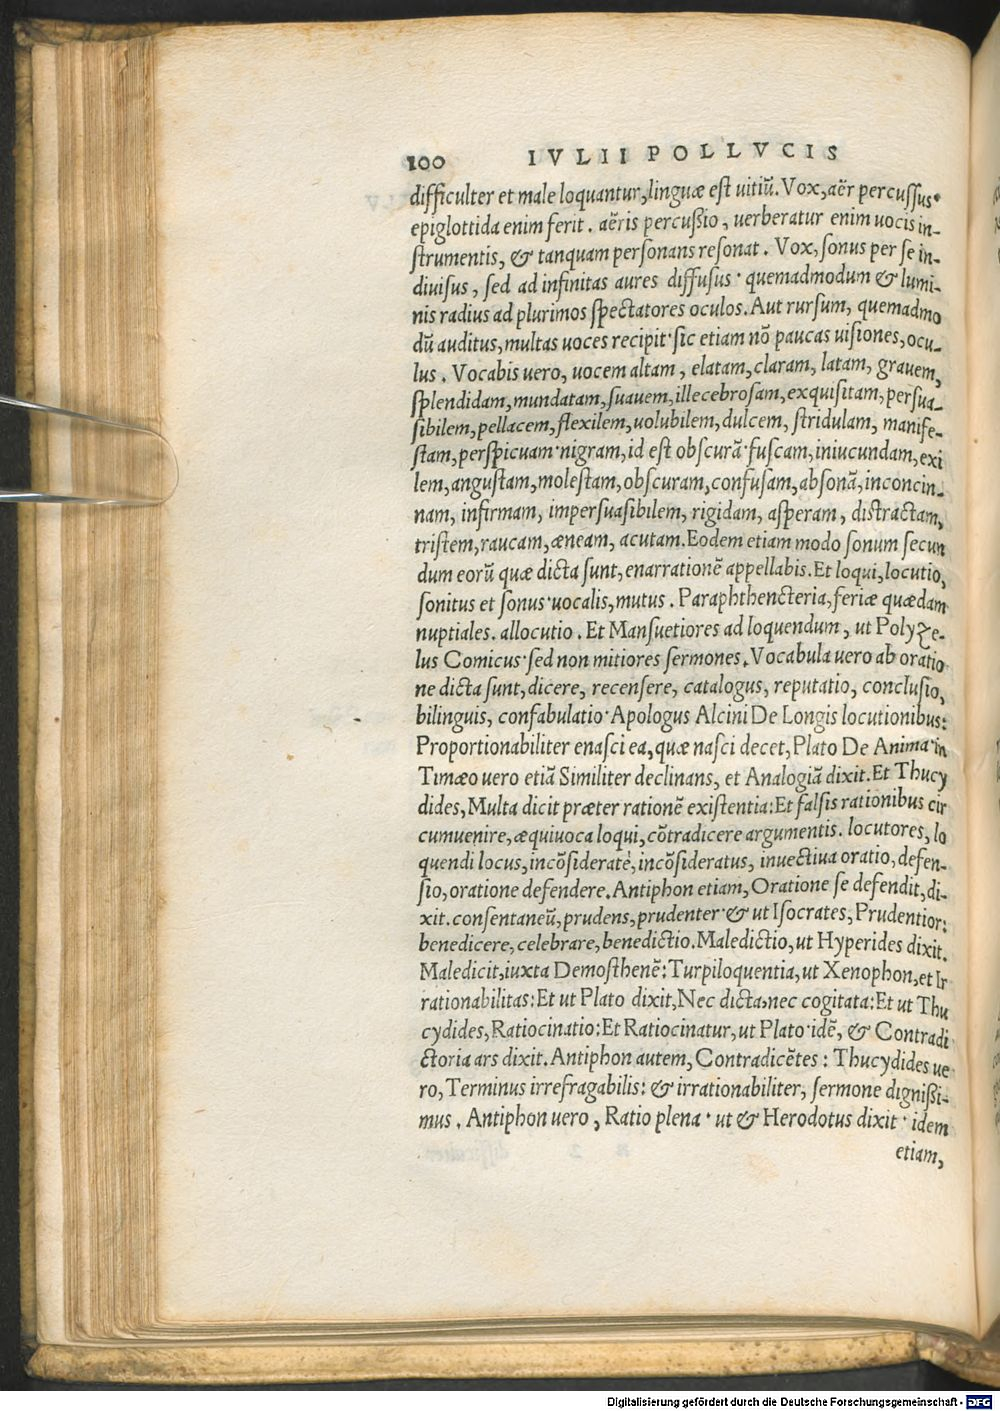 100 IVLII POLLVCIS
difficulter et male loquantur, linguæ est uitiũ. Vox, aër percussus·
epiglottida enim ferit. aëris percussio, uerberatur enim uocis in-
strumentis, & tanquam personans resonat. Vox, sonus per se in-
diuisus, sed ad infinitas aures diffusus· quemadmodum & lumi-
nis radius ad plurimos spectatores oculos. Aut rursum, quemadmo
dũ auditus, multas uoces recipit· sic etiam nõ paucas uisiones, ocu-
lus. Vocabis uero, uocem altam, elatam, claram, latam, grauem,
splendidam, mundatam, suauem, illecebrosam, exquisitam, persua-
sibilem, pellacem, flexilem, uolubilem, dulcem, stridulam, manife-
stam, perspicuam· nigram, id est obscurã· fuscam, iniucundam, exi
lem, angustam, molestam, obscuram, confusam, absonã, inconcin-
nam, infirmam, impersuasibilem, rigidam, asperam, distractam,
tristem, raucam, æneam, acutam. Eodem etiam modo sonum secun
dum eorũ quæ dicta sunt, enarrationẽ appellabis. Et loqui, locutio,
sonitus et sonus· uocalis, mutus. Paraphthencteria, feriæ quædam
nuptiales. allocutio. Et Mansuetiores ad loquendum, ut Polyze-
lus Comicus· sed non mitiores sermones. Vocabula uero ab oratio
ne dicta sunt, dicere, recensere, catalogus, reputatio, conclusio,
bilinguis, confabulatio· Apologus Alcini De Longis locutionibus:
Proportionabiliter enasci ea, quæ nasci decet, Plato De Anima· in
Timæo uero etiã Similiter declinans, et Analogiã dixit. Et Thucy
dides, Multa dicit præter rationẽ existentia: Et falsis rationibus cir
cumuenire, æquiuoca loqui, cõtradicere argumentis. locutores, lo
quendi locus, incõsideratè, incõsideratus, inuectiua oratio, defen-
sio, oratione defendere. Antiphon etiam, Oratione se defendit, di-
xit. consentaneũ, prudens, prudenter· & ut Isocrates, Prudentior:
benedicere, celebrare, benedictio. Maledictio, ut Hyperides dixit.
Maledicit, iuxta Demosthenẽ: Turpiloquentia, ut Xenophon, et Ir
rationabilitas: Et ut Plato dixit, Nec dicta, nec cogitata: Et ut Thu
cydides, Ratiocinatio: Et Ratiocinatur, ut Plato· idẽ, & Contradi
ctoria ars dixit. Antiphon autem, Contradicẽtes: Thucydides ue
ro, Terminus irrefragabilis: & irrationabiliter, sermone dignissi-
mus. Antiphon uero, Ratio plena· ut & Herodotus dixit· idem
etiam,
Digitalisierung gefördert durch die Deutsche Forschungsgemeinschaft - DFG